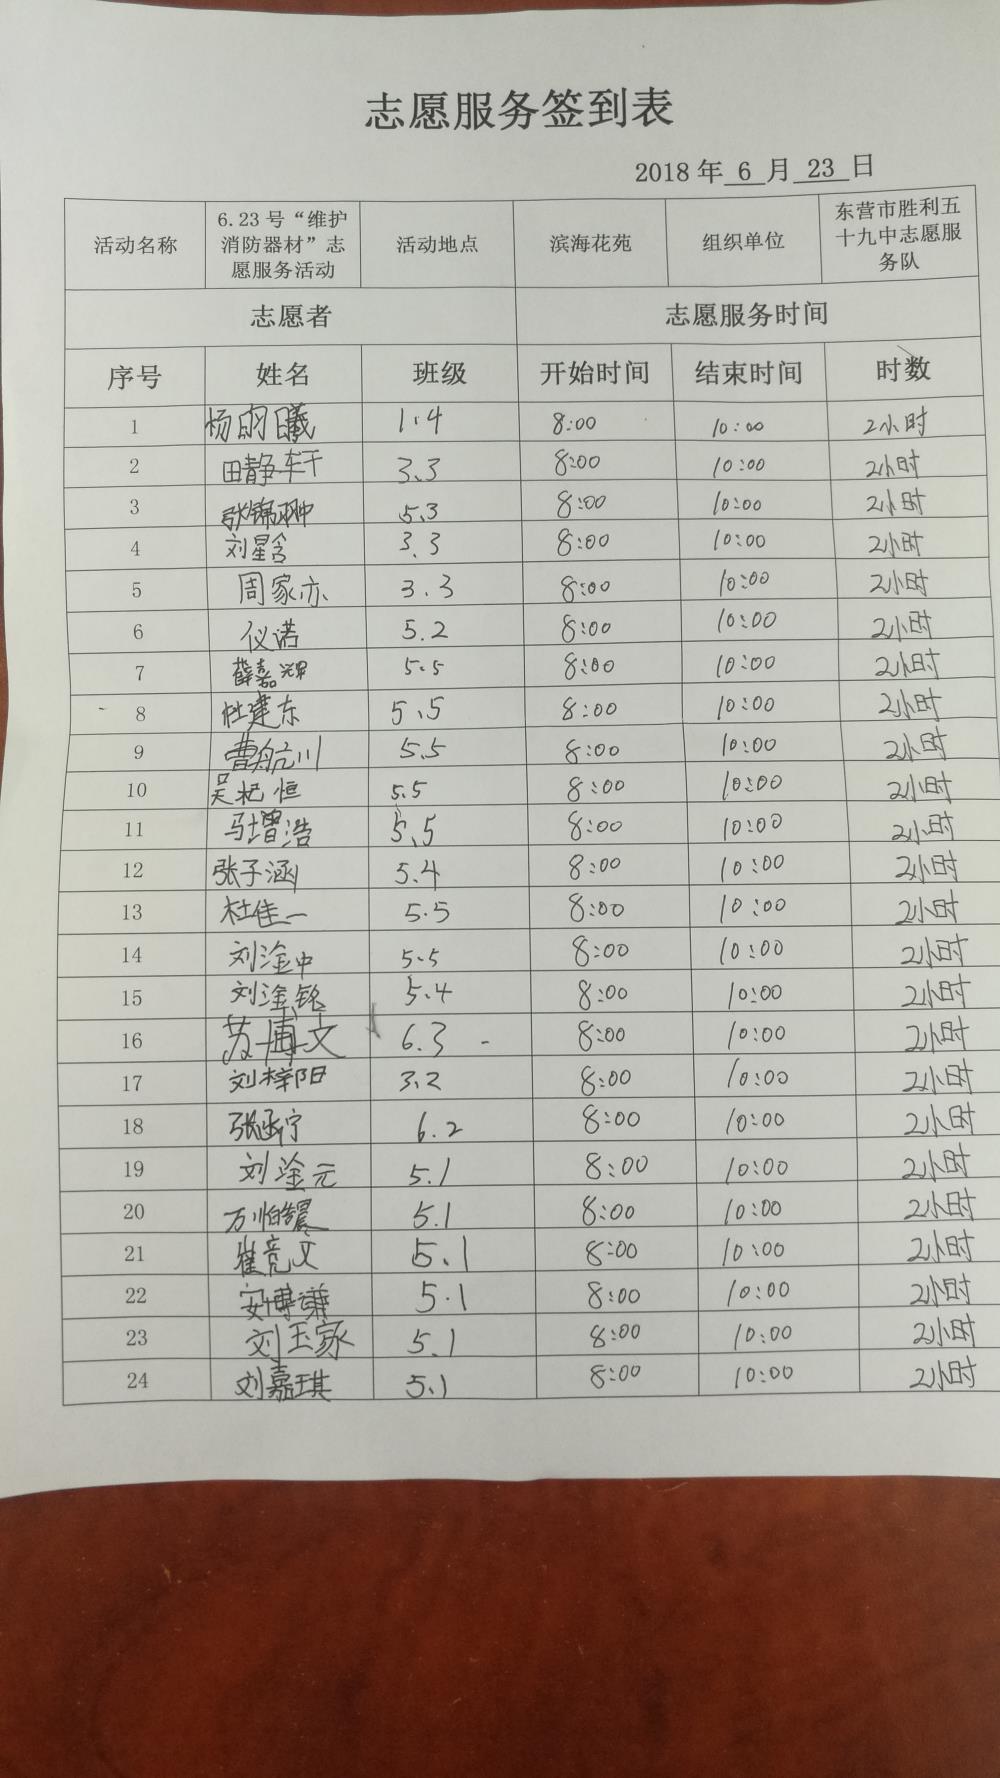 志愿服务签到表
2018 年 6 月 23 日
活动名称 6.23 号“维护消防器材”志愿服务活动 活动地点 滨海花苑 组织单位 东营市胜利五十九中志愿服务队
志愿者 志愿服务时间
序号 姓名 班级 开始时间 结束时间 时数
1 杨明曦 1.4 8:00 10:00 2小时
2 田静轩 3.3 8:00 10:00 2小时
3 张锦翀 5.3 8:00 10:00 2小时
4 刘星含 3.3 8:00 10:00 2小时
5 周家亦 3.3 8:00 10:00 2小时
6 仪诺 5.2 8:00 10:00 2小时
7 薛嘉辉 5.5 8:00 10:00 2小时
8 杜建东 5.5 8:00 10:00 2小时
9 曹航川 5.5 8:00 10:00 2小时
10 吴杞恒 5.5 8:00 10:00 2小时
11 马增浩 5.5 8:00 10:00 2小时
12 张子涵 5.4 8:00 10:00 2小时
13 杜佳一 5.5 8:00 10:00 2小时
14 刘淦中 5.5 8:00 10:00 2小时
15 刘淦铭 5.4 8:00 10:00 2小时
16 苏博文 6.3 8:00 10:00 2小时
17 刘梓阳 3.2 8:00 10:00 2小时
18 张函宁 6.2 8:00 10:00 2小时
19 刘淦元 5.1 8:00 10:00 2小时
20 5.1 8:00 10:00 2小时
21 崔竞文 5.1 8:00 10:00 2小时
22 安博谦 5.1 8:00 10:00 2小时
23 刘玉家 5.1 8:00 10:00 2小时
24 刘嘉琪 5.1 8:00 10:00 2小时